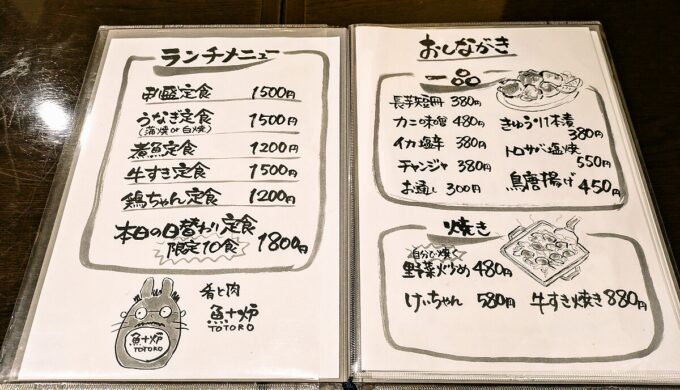 ランチメニュー
甲盛定食 1500円
うなぎ定食 1500円
(蒲焼 or 白焼)
煮魚定食 1200円
牛すき定食 1500円
鶏ちゃん定食 1200円
本日の日替わり定食
限定10食 1800円
肴と肉
魚十炉
TOTORO
魚十炉
TOTORO
おしながき
一品
長芋短冊 380円
カニ味噌 480円
イカ塩辛 380円
チャンジャ 380円
お通し 300円
きゅうり1本漬
380円
トロサバ塩焼
550円
鳥唐揚げ 450円
焼き
自分で焼く
野菜炒め 480円
けいちゃん 580円
牛すき焼き 880円